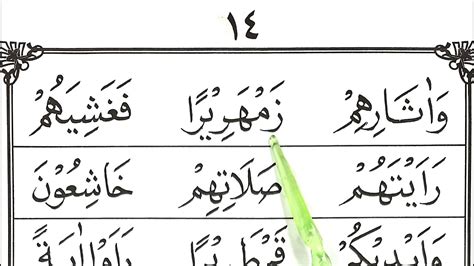 ١٤
وَاٰثَارِهِمْ زَمْهَرِيْرًا فَغَشِيَهُمْ
رَاَيْتَهُمْ صَلَاتِهِمْ خَاشِعُوْنَ
وَاَيْدِيْكُمْ